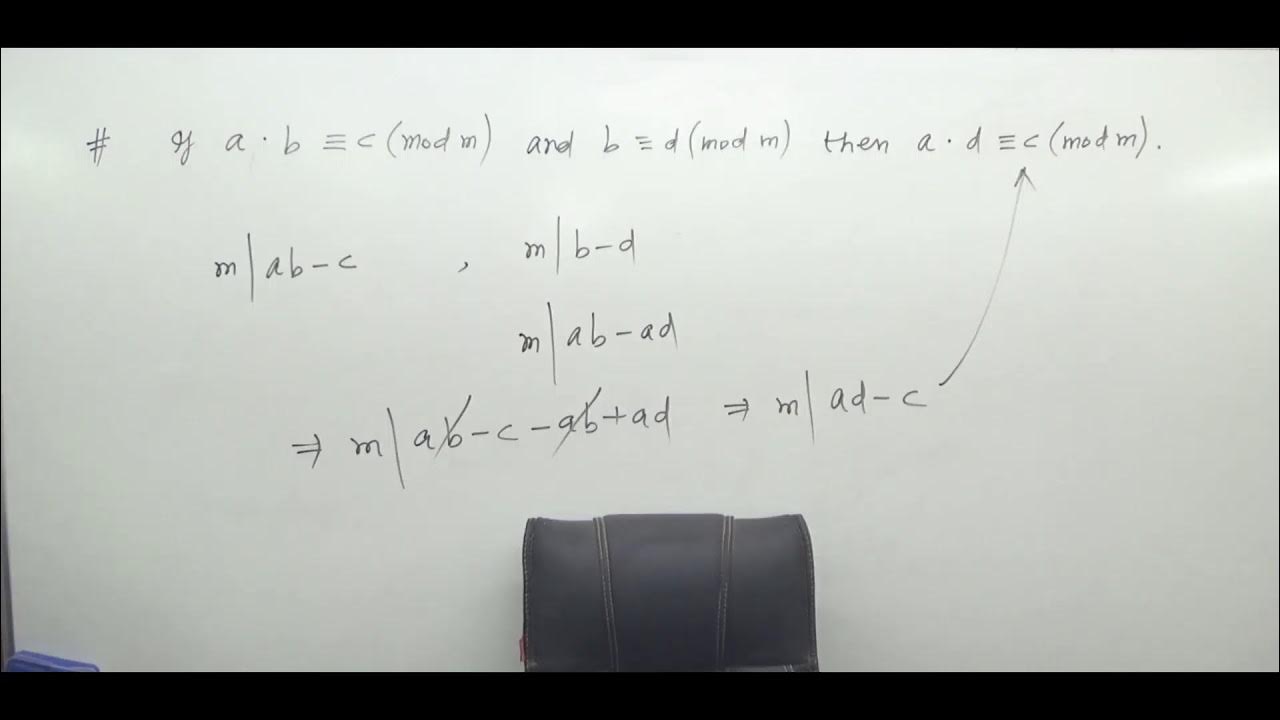 # If a · b ≡ c (mod m) and b ≡ d (mod m) then a · d ≡ c (mod m).
m | ab - c , m | b - d
m | ab - ad
⇒ m | ab - c - ab + ad ⇒ m | ad - c